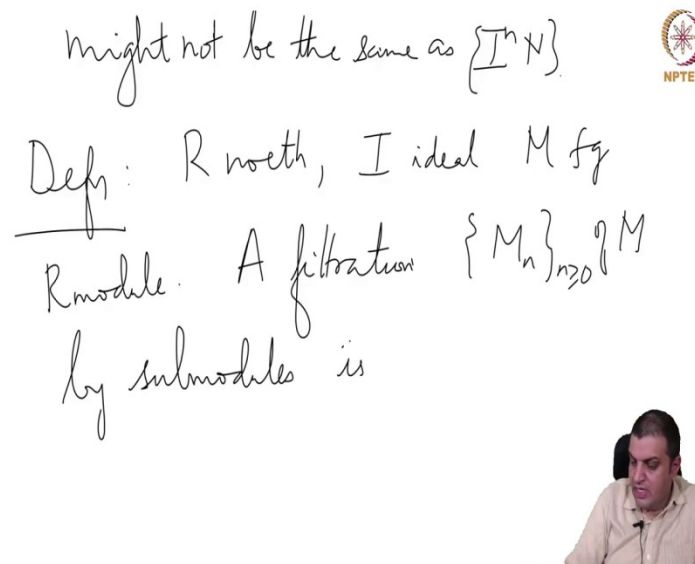 might not be the same as {IⁿN}.
NPTE
Defn: R noeth, I ideal M fg
R module. A filtration {Mₙ}ₙ≥₀ of M
by submodules is